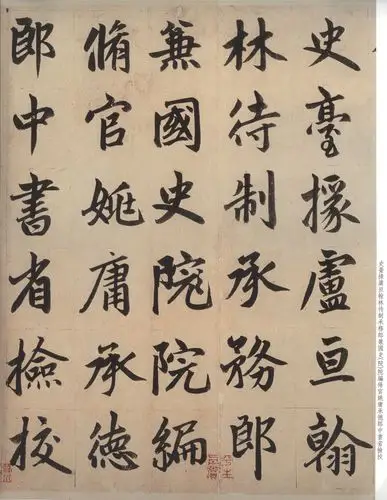 史臺掾盧亘翰
林待制承務郎
兼國史院院編
脩官姚庸承德
郎中書省檢校
史臺掾盧亘翰林待制承務郎兼國史院院編脩官姚庸承德郎中書省檢校